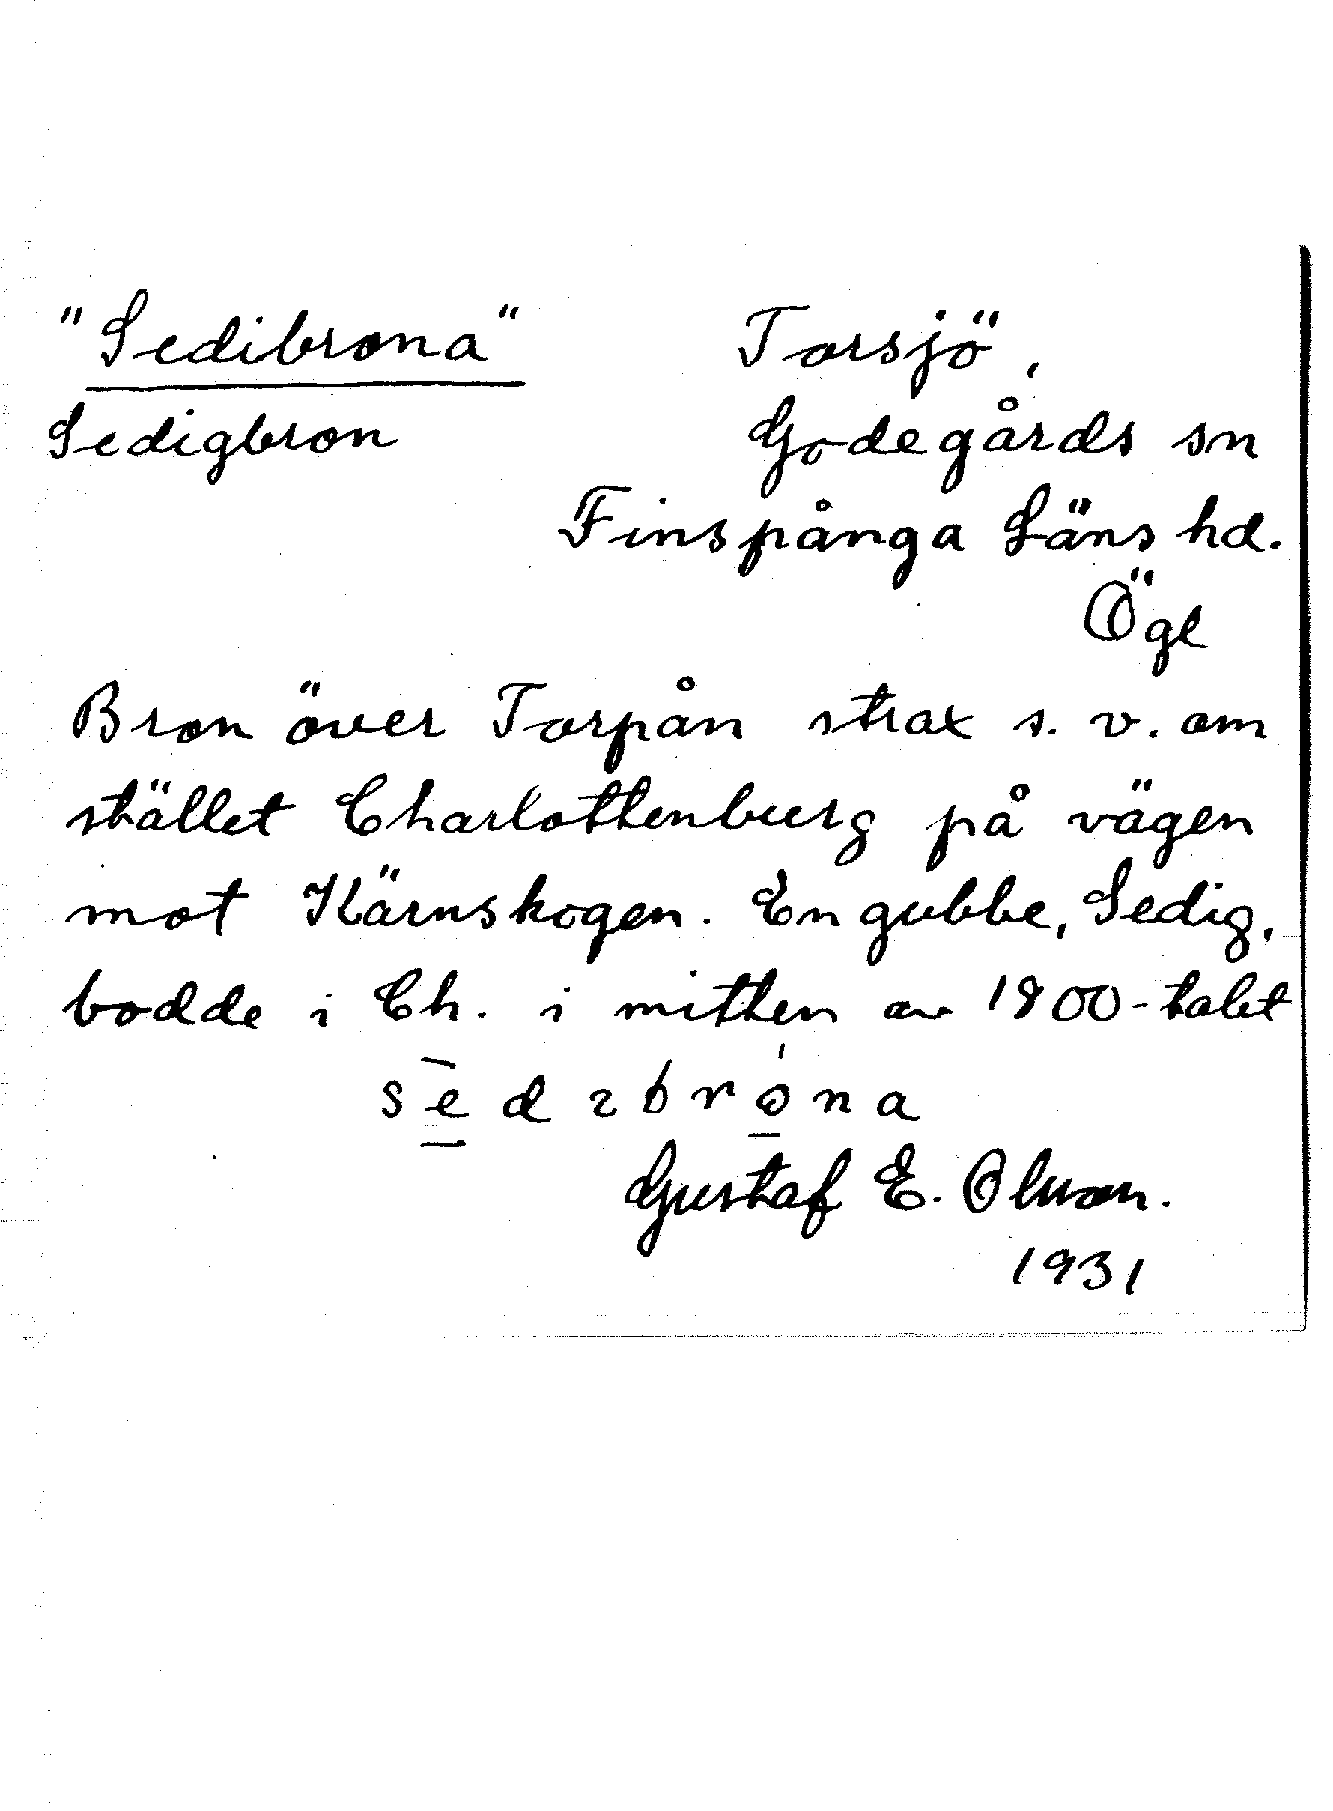 "Sedibrona"
Sedigbron
Torsjö,
Godegårds sn
Finspånga Läns hd.
Ögl
Bron över Torpån strax s. v. om
stället Charlottenburg på vägen
mot Kärnskogen. En gubbe, Sedig,
bodde i Ch. i mitten av 1800-talet
Gustaf E. Olsson.
1931